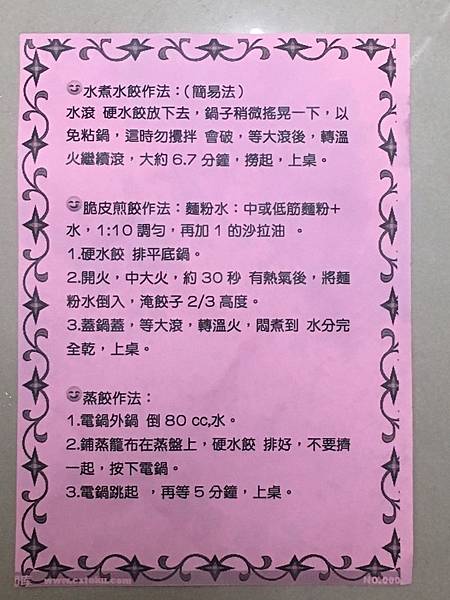 水煮水餃作法：(簡易法)
水滾 硬水餃放下去，鍋子稍微搖晃一下，以
免粘鍋，這時勿攪拌 會破，等大滾後，轉溫
火繼續滾，大約 6.7 分鐘，撈起，上桌。
脆皮煎餃作法：麵粉水：中或低筋麵粉+
水，1:10 調勻，再加 1 的沙拉油 。
1.硬水餃 排平底鍋。
2.開火，中大火，約 30 秒 有熱氣後，將麵
粉水倒入，淹餃子 2/3 高度。
3.蓋鍋蓋，等大滾，轉溫火，悶煮到 水分完
全乾，上桌。
蒸餃作法：
1.電鍋外鍋 倒 80 cc,水。
2.鋪蒸籠布在蒸盤上，硬水餃 排好，不要擠
一起，按下電鍋。
3.電鍋跳起 ，再等 5 分鐘，上桌。
库 www.cxtuku.com NO.000